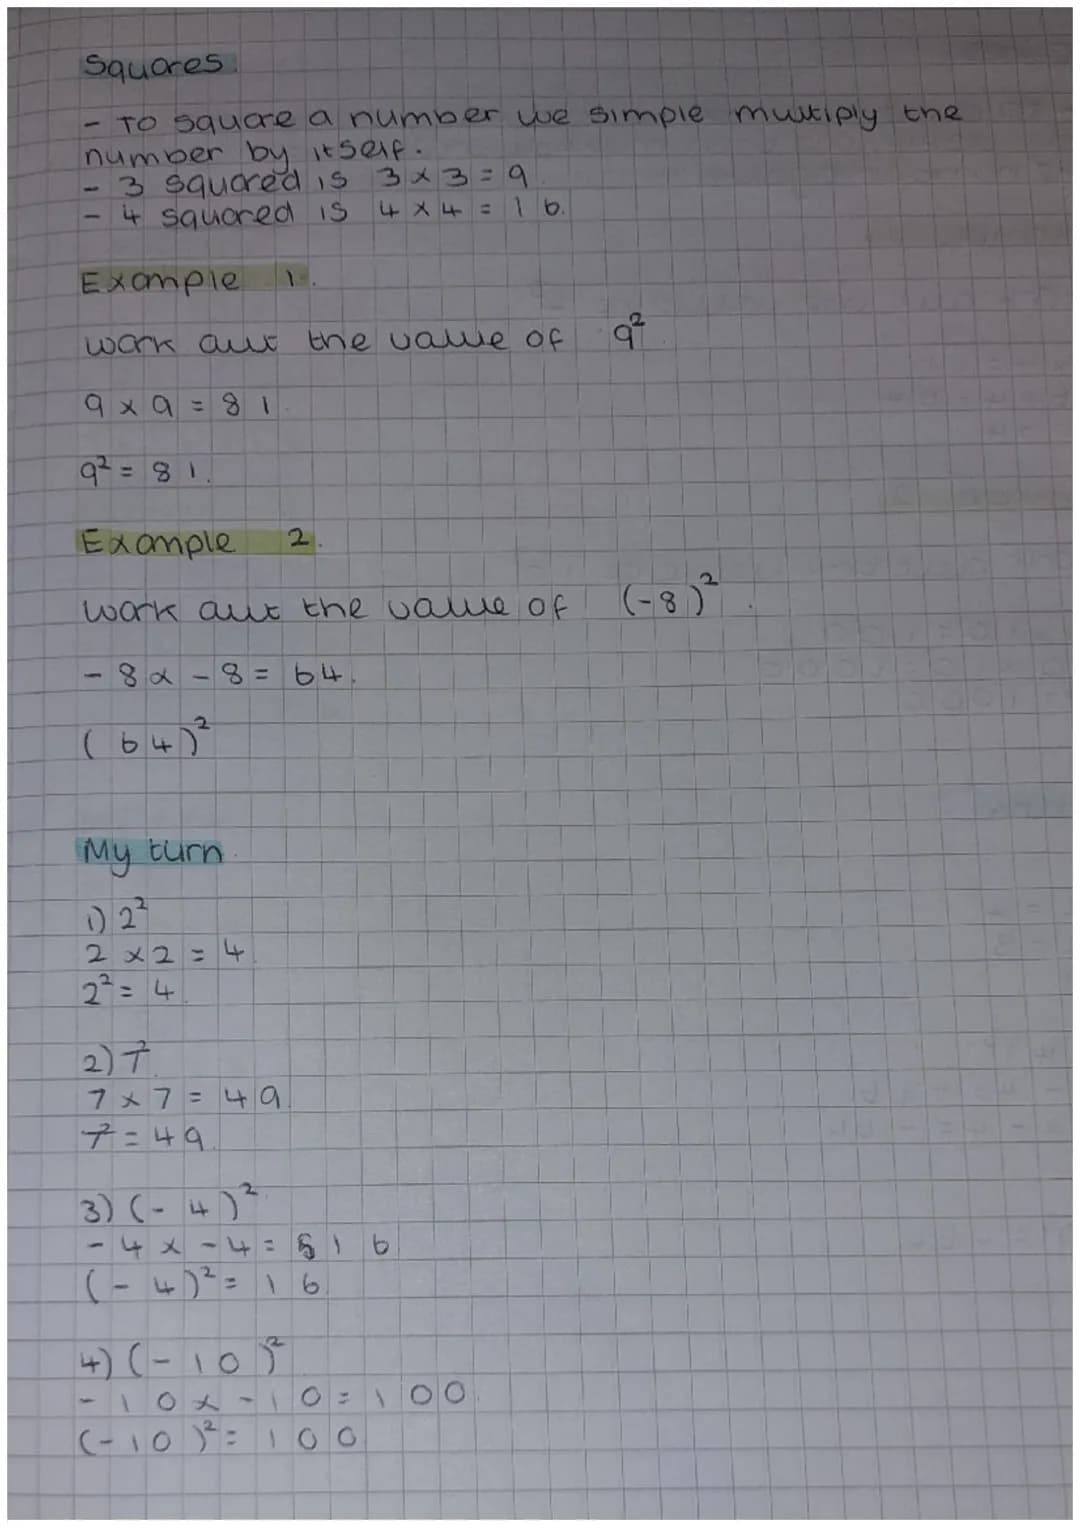 Squares
- To square a number we simple multiply the
number by itself.
- 3 squared is 3 × 3 = 9
- 4 squared is 4 × 4 = 16.
Example 1.
work out the value of 9²
9 × 9 = 81
9² = 81.
Example 2.
work out the value of (-8)².
- 8 × - 8 = 64.
(64)²
My turn
1) 2²
2 × 2 = 4
2² = 4
2) 7²
7 × 7 = 49
7² = 49
3) (- 4)²
- 4 × - 4 = 16
(- 4)² = 16
4) (- 10)²
- 10 × - 10 = 100
(-10)² = 100